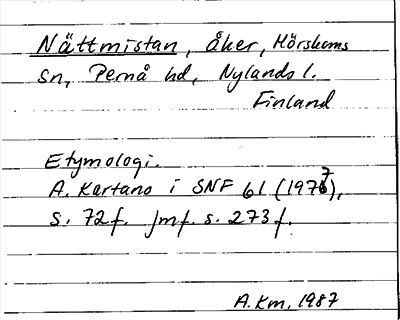 Nättmistan, åker, Mörskoms
sn, Pernå hd, Nylands l.
Finland
Etymologi.
A. Kartano i SNF 61 (1977),
s. 72 f. Jmf. s. 273 f.
A. Km. 1987